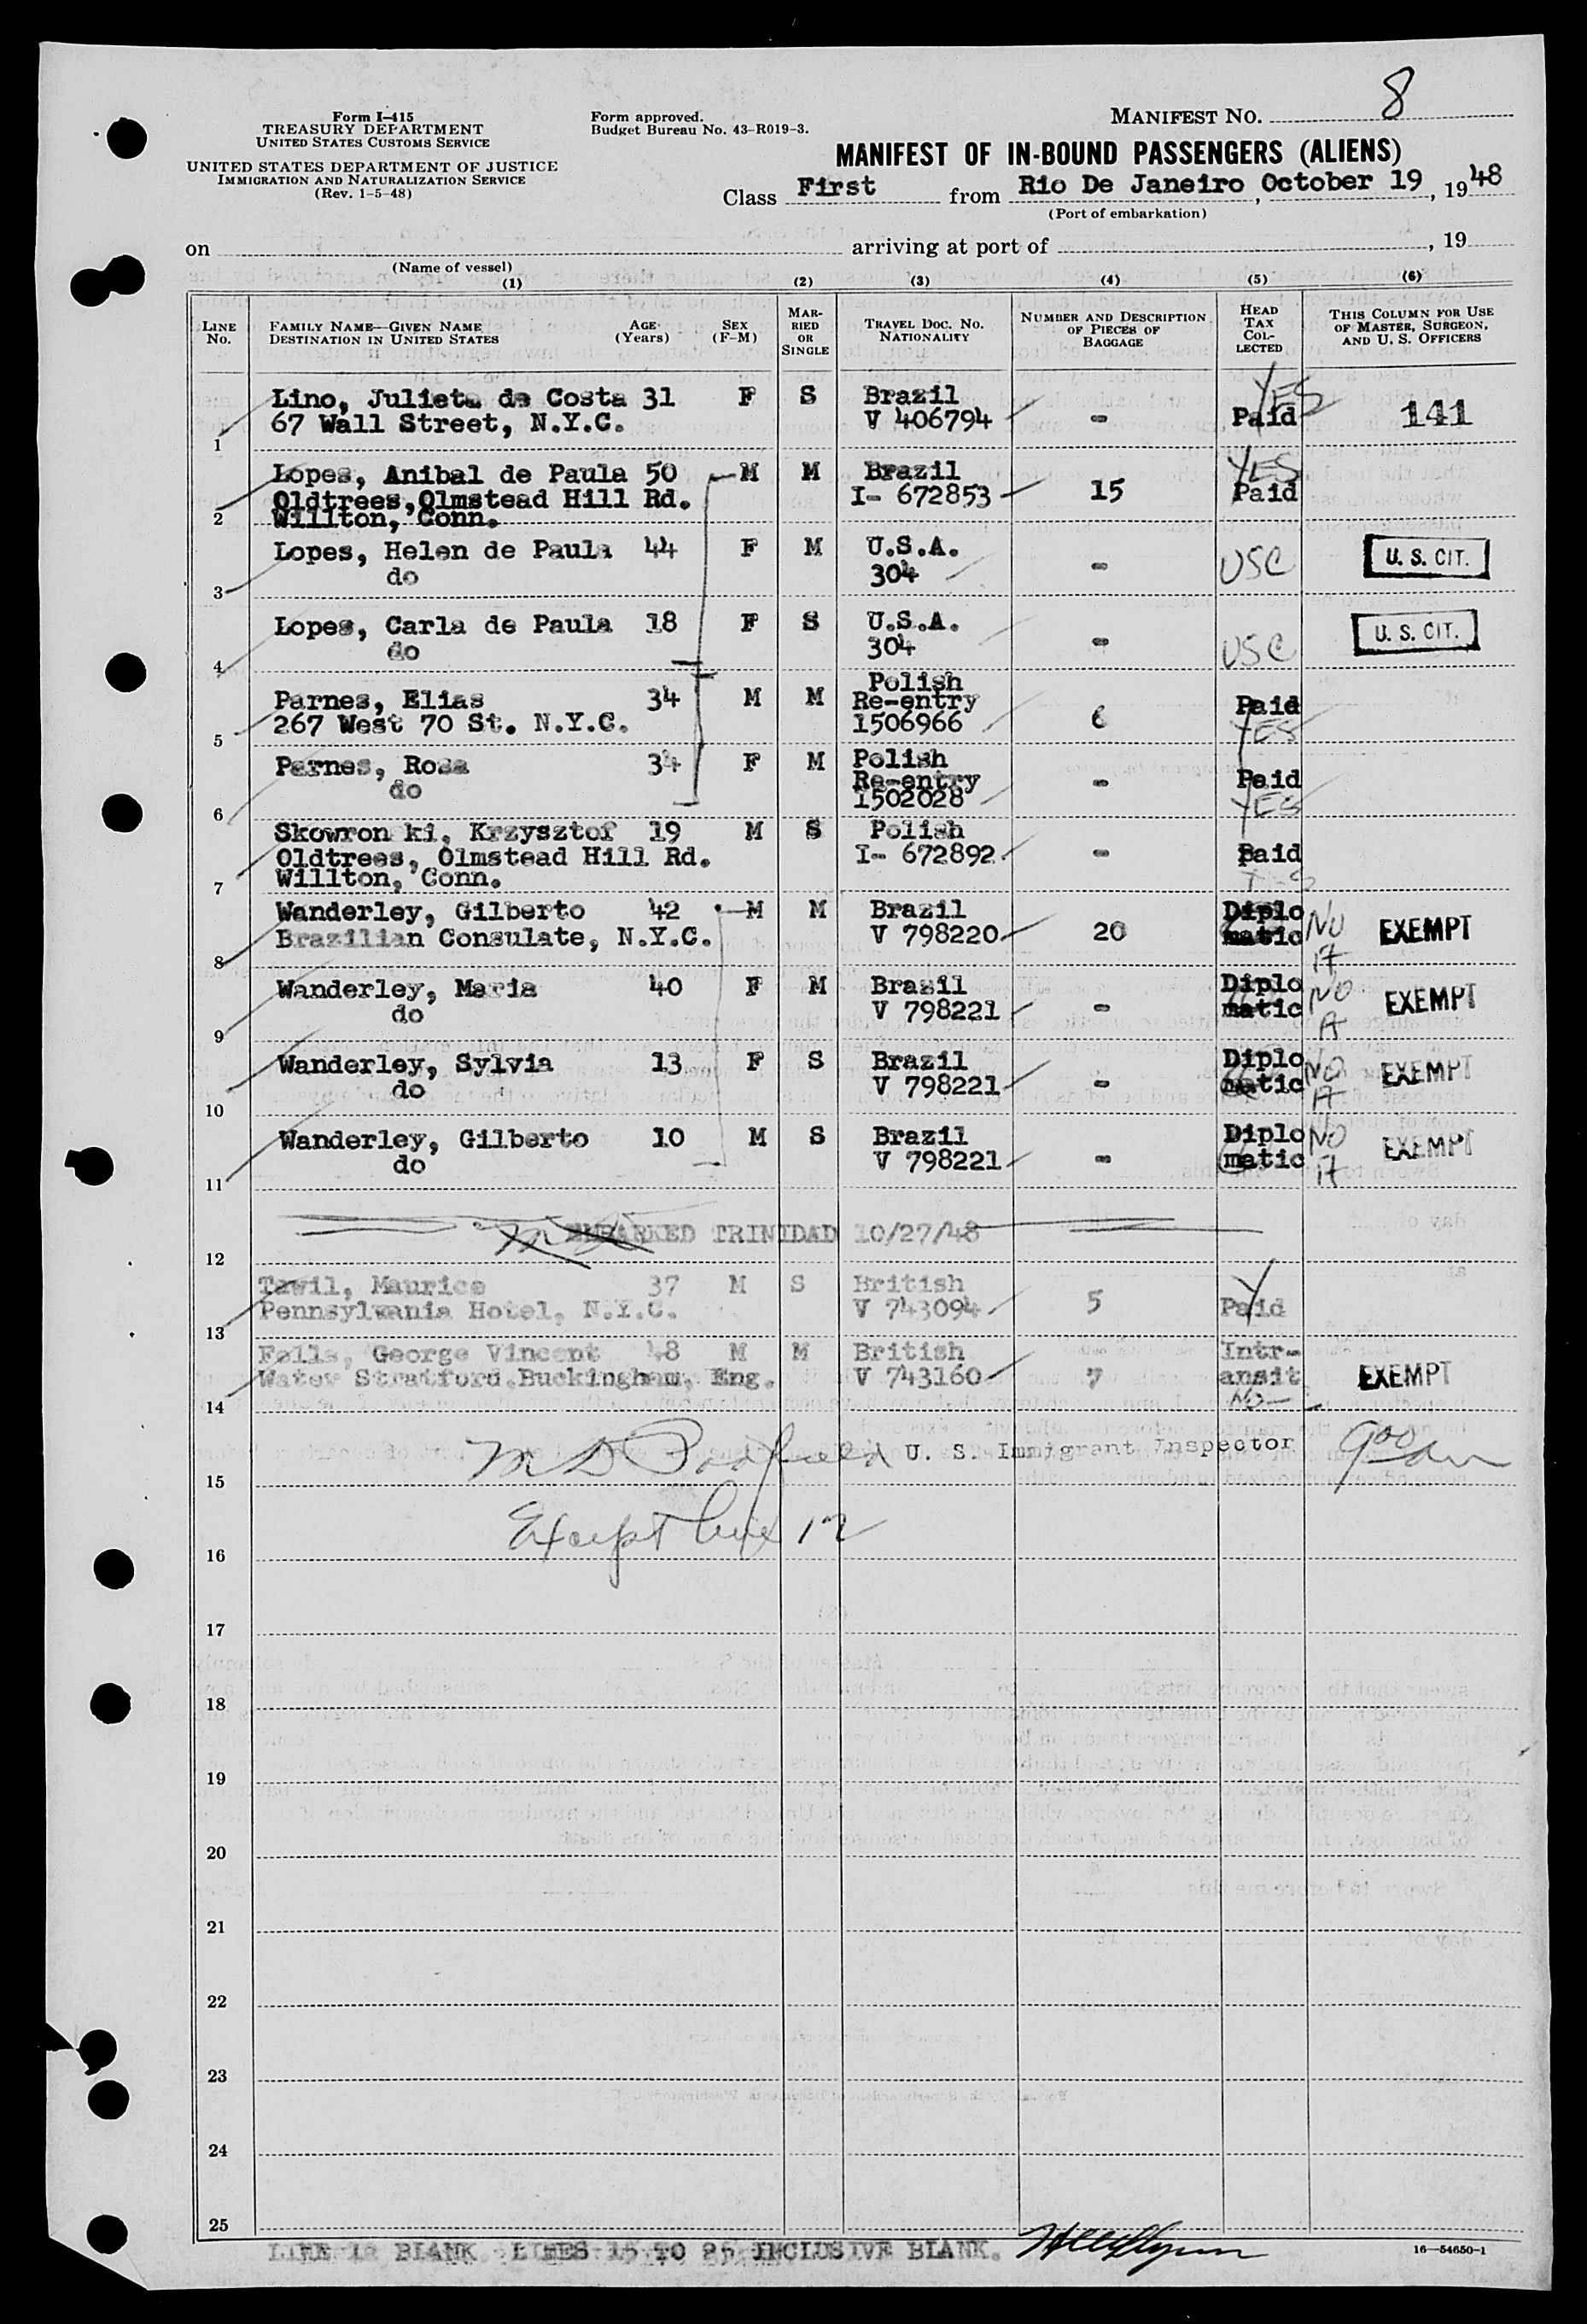 Form I-415
TREASURY DEPARTMENT
UNITED STATES CUSTOMS SERVICE
UNITED STATES DEPARTMENT OF JUSTICE
IMMIGRATION AND NATURALIZATION SERVICE
(Rev. 1-5-48)
Form approved.
Budget Bureau No. 43-R019-3.
MANIFEST NO. 8
MANIFEST OF IN-BOUND PASSENGERS (ALIENS)
Class First from Rio De Janeiro, October 19, 1948
(Port of embarkation)
on arriving at port of , 19
(Name of vessel)
(1) (2) (3) (4) (5) (6)
LINE NO.
FAMILY NAME—GIVEN NAME
DESTINATION IN UNITED STATES
AGE (Years)
SEX (F-M)
MARRIED OR SINGLE
TRAVEL DOC. NO.
NATIONALITY
NUMBER AND DESCRIPTION OF PIECES OF BAGGAGE
HEAD TAX COLLECTED
THIS COLUMN FOR USE OF MASTER, SURGEON, AND U. S. OFFICERS
Lino, Julieta de Costa 31 F S Brazil YES
67 Wall Street, N.Y.C. V 406794 - Paid 141
1
Lopes, Anibal de Paula 50 M M Brazil YES
Oldtrees, Olmstead Hill Rd. I- 672853 15 Paid
2 Willton, Conn.
Lopes, Helen de Paula 44 F M U.S.A. USC U. S. CIT.
do 304 -
3
Lopes, Carla de Paula 18 F S U.S.A. USC U. S. CIT.
do 304 -
4
Parnes, Elias 34 M M Polish Re-entry Paid
267 West 70 St. N.Y.C. 1506966 6 YES
5
Parnes, Rosa 34 F M Polish Re-entry Paid
do 1502028 - YES
6
Skowron ki, Krzysztof 19 M S Polish
Oldtrees, Olmstead Hill Rd. I- 672892 - Paid
7 Willton, Conn.
Wanderley, Gilberto 42 M M Brazil Diplo NO
Brazilian Consulate, N.Y.C. V 798220 20 matic EXEMPT
8
Wanderley, Maria 40 F M Brasil Diplo NO
do V 798221 - matic EXEMPT
9
Wanderley, Sylvia 13 F S Brazil Diplo NO
do V 798221 - matic EXEMPT
10
Wanderley, Gilberto 10 M S Brazil Diplo NO
do V 798221 - matic EXEMPT
11
EMBARKED TRINIDAD 10/27/48
12
Tawil, Maurice 37 M S British Y
Pennsylvania Hotel, N.Y.C. V 743094 5 Paid
13
Falls, George Vincent 48 M M British Intr-
Water Stratford, Buckingham, Eng. V 743160 7 ansit EXEMPT
14 No
U. S. Immigrant Inspector
15
Except line 12
16
17
18
19
20
21
22
23
24
25
LINE 12 BLANK LINES 15 TO 25 INCLUSIVE BLANK.
16—54650-1